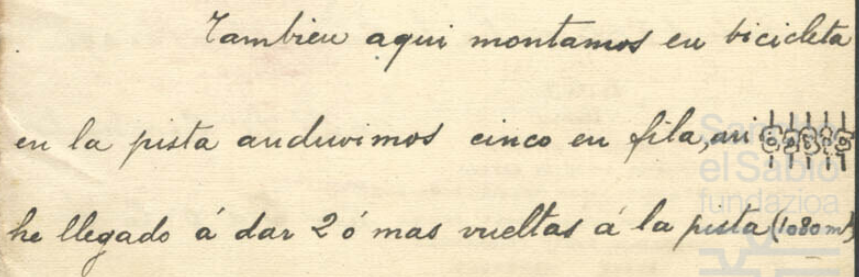 Tambien aqui montamos en bicicleta
en la pista anduvimos cinco en fila, asi
he llegado á dar 2 ó mas vueltas á la pista (1080 mt)
Sancho
el Sabio
fundazioa